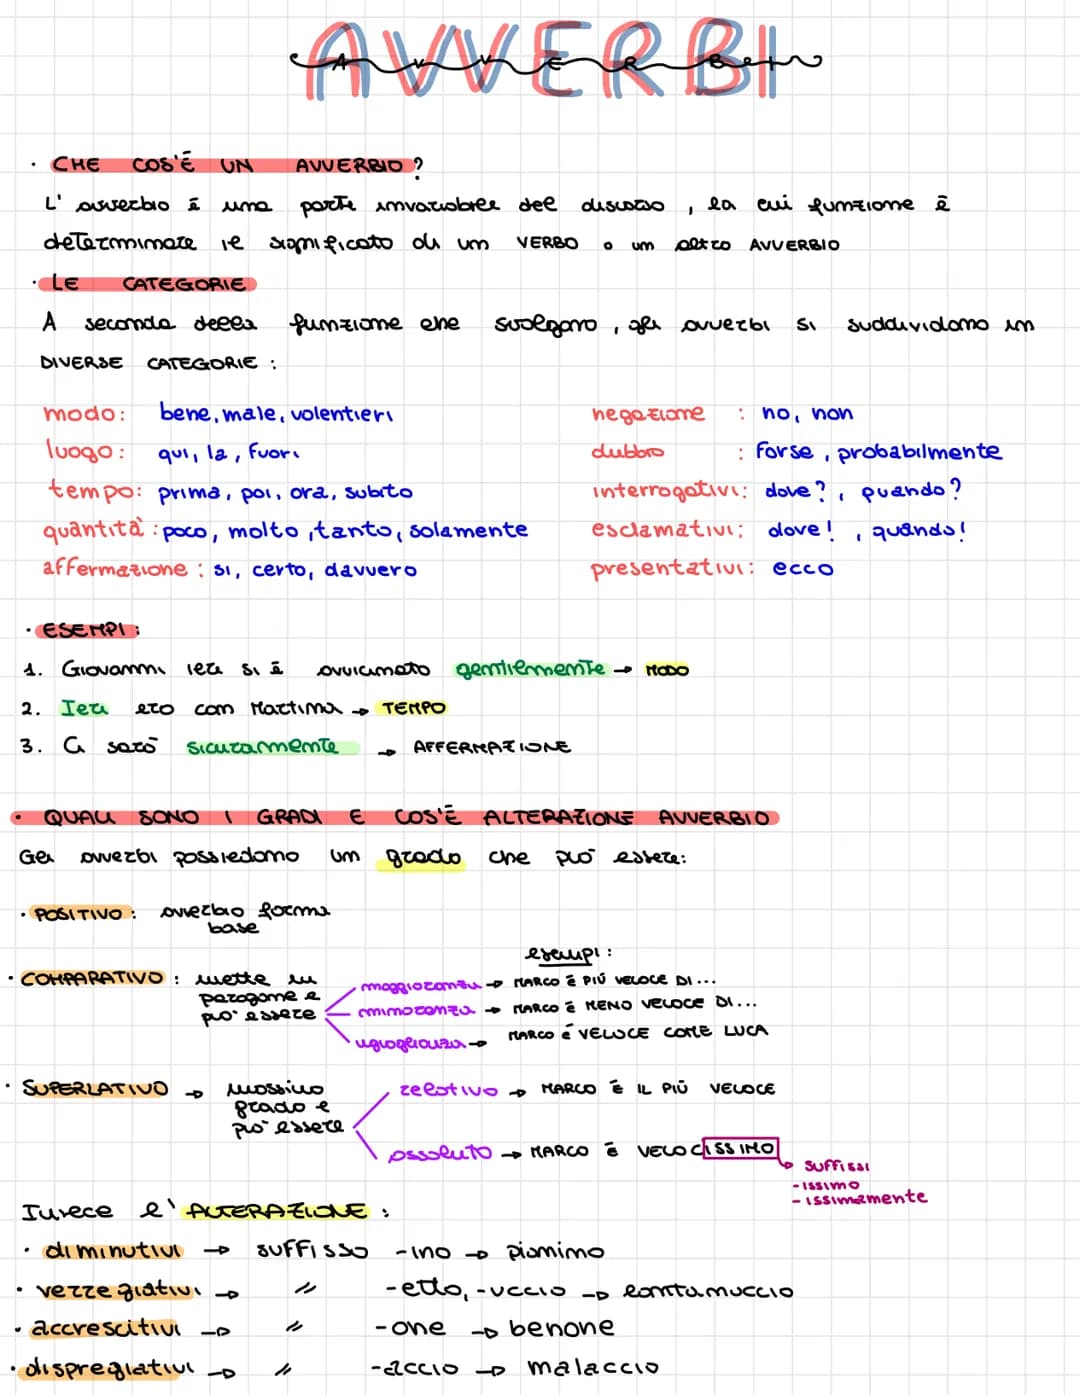 AVVERBI
Avverbi
· CHE COS'É UN AVVERBIO?
L'avverbio è una parte invariabile del discorso, la cui funzione è
determinare il significato di un VERBO o un altro AVVERBIO
· LE CATEGORIE
A seconda della funzione che svolgono, gli avverbi si suddividono in
DIVERSE CATEGORIE:
modo: bene, male, volentieri
negazione: no, non
luogo: qui, la, fuori
dubbio: forse, probabilmente
tempo: prima, poi, ora, subito
interrogativi: dove?, quando?
quantità: poco, molto, tanto, solamente
esclamativi: dove!, quando!
affermazione: si, certo, davvero
presentativi: ecco
· ESEMPI:
1. Giovanni ieri si è avvicinato gentilemente → MODO
2. Ieri ero con Martina → TEMPO
3. Ci sarò sicuramente → AFFERMAZIONE
· QUALI SONO I GRADI E COS'È ALTERAZIONE AVVERBIO
Gli avverbi possiedono un grado che può essere:
· POSITIVO: avverbio forma
base
esempi:
· COMPARATIVO: mette in
paragone e
può essere
maggioranza → MARCO É PIÚ VELOCE DI...
minoranza → MARCO É MENO VELOCE DI...
uguaglianza → MARCO é VELOCE COME LUCA
· SUPERLATIVO → massimo
grado e
può essere
relativo → MARCO É IL PIÙ VELOCE
assoluto → MARCO È VELOCISSIMO
suffissi
-issimo
-issimamente
Invece l'ALTERAZIONE:
· diminutivi → SUFFISSO -ino → pianino
· vezzegiativi → " -etto, -uccio → lontanuccio
· accrescitivi → " -one → benone
· dispregiativi → " -accio → malaccio